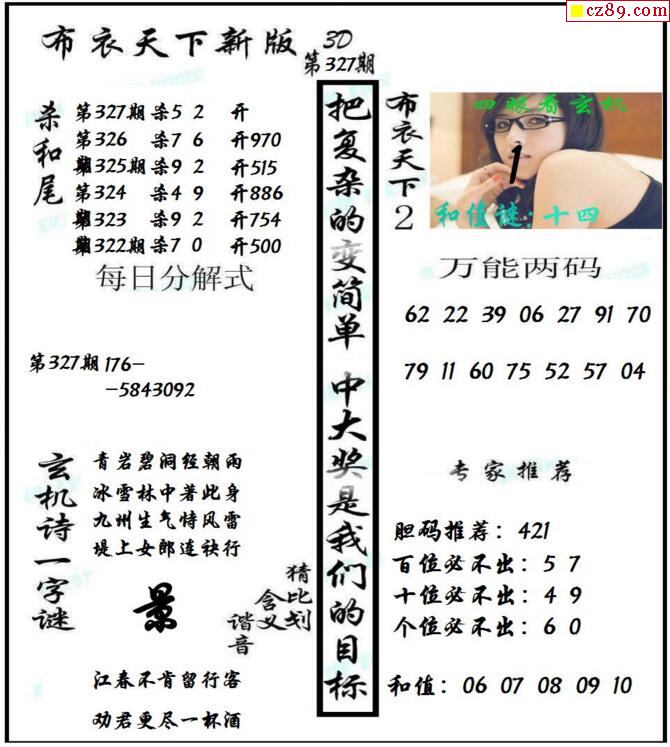 cz89.com
布衣天下新版 3D
第327期
杀和尾
第327期 杀5 2 开
第326 杀7 6 开970
第325期 杀9 2 开515
第324 杀4 9 开886
第323 杀9 2 开754
第322期 杀7 0 开500
每日分解式
第327期 176-
-5843092
玄机诗一字谜
青岩碧洞经朝雨
冰雪林中著此身
九州生气恃风雷
堤上女郎连袂行
景
猜比划
含义
谐音
江春不肯留行客
劝君更尽一杯酒
把复杂的变简单 中大奖是我们的目标
布衣天下2
四眼看玄机
1
和值谜:十四
万能两码
62 22 39 06 27 91 70
79 11 60 75 52 57 04
专家推荐
胆码推荐：421
百位必不出：5 7
十位必不出：4 9
个位必不出：6 0
和值：06 07 08 09 10